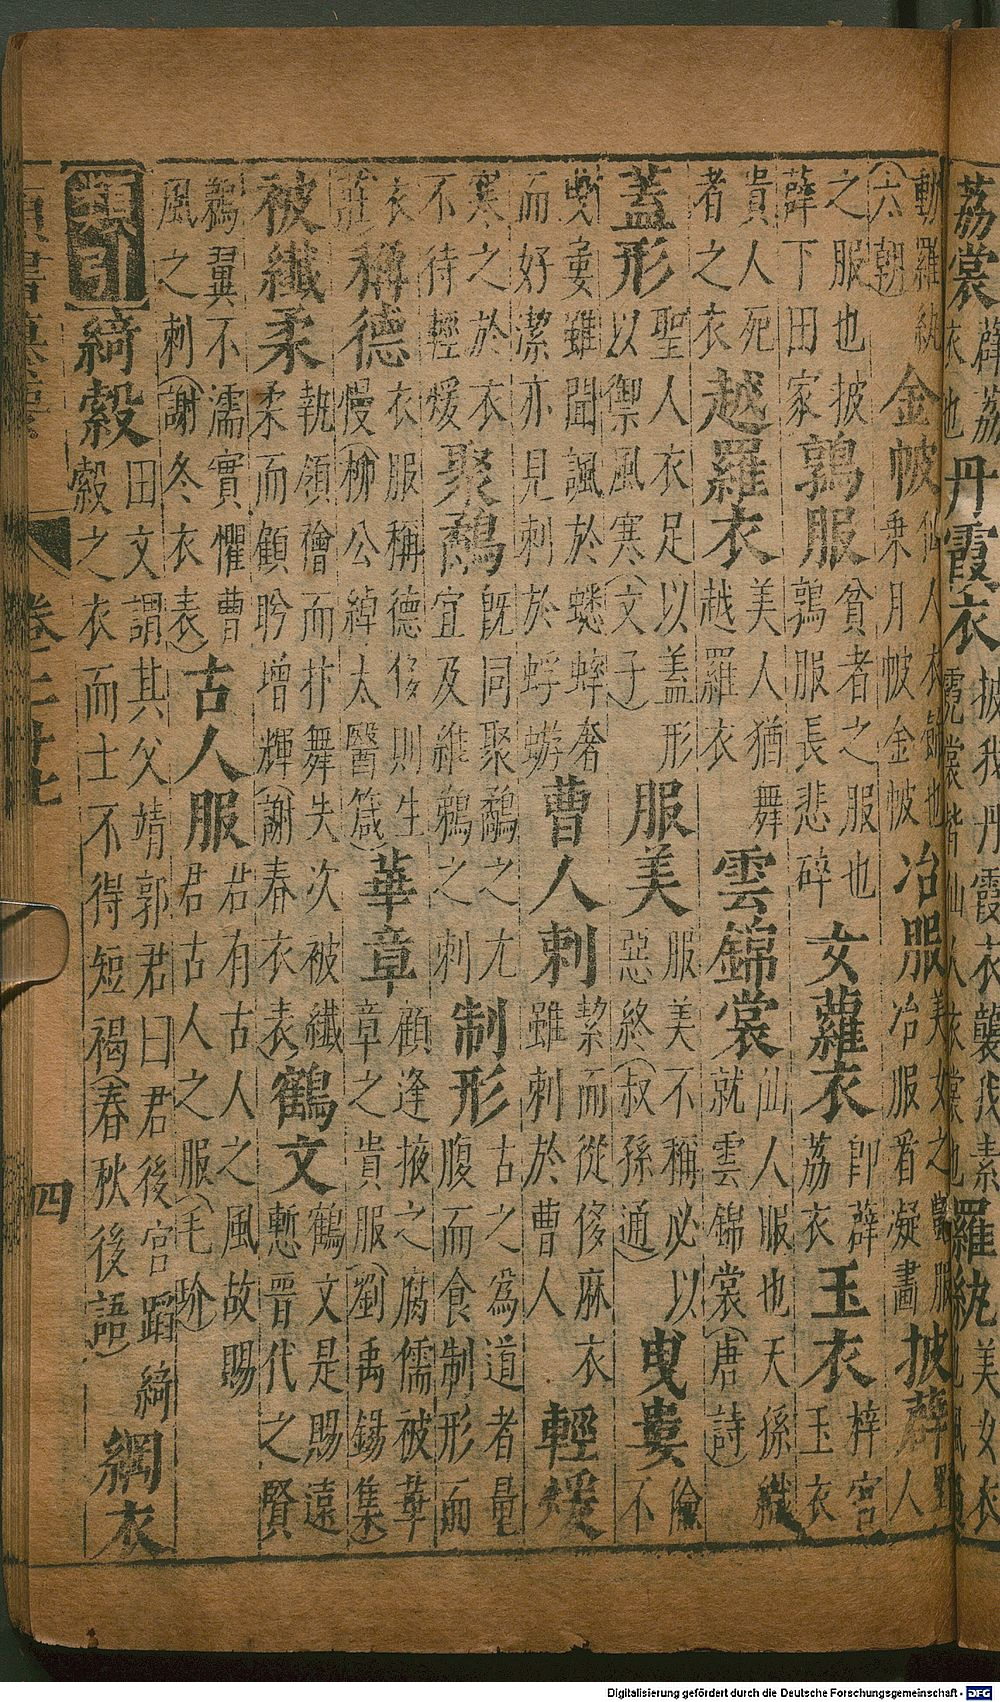 荔裳薜荔衣也丹霞衣披我丹霞衣襲我素霓裳皆仙人衣裳也羅紈美女衣也
動羅紈(六朝)金帔仙人衣飾也乘月帔金帔冶服冶服美女之艷服冶服看凝畫披薜人
之服也披薜下田家鶉服貧者之服也鶉服長悲碎女蘿衣卽薜荔衣玉衣梓宮玉衣
貴人死者之衣越羅衣美人猶舞越羅衣雲錦裳仙人服也天孫織就雲錦裳(唐詩)
蓋形聖人衣足以蓋形以禦風寒(文子)服美服美不稱必以惡終(叔孫通)曳婁儉不
曳婁雖聞諷於蟋蟀奢而好潔亦見刺於蜉蝣曹人刺絜而從侈麻衣雖刺於曹人輕煖
寒之於衣不待輕煖聚鷸旣同聚鷸之尤宜及維鵜之刺制形古之為道者量腹而食制形而
衣(莊)稱德衣服稱德侈則生慢(柳公綽太醫箴)華章顧逢掖之腐儒被華章之貴服(劉禹錫集)
被纖柔執領襘而抃舞失次被纖柔而顧盻增輝(謝春衣表)鶴文鶴文是賜遠慙晉代之賢
鵜翼不濡實懼曹風之刺(謝冬衣表)古人服君有古人之風故賜君古人之服(毛玠)
類引綺縠田文謂其父靖郭君曰君後宮蹈綺縠之衣而士不得短褐(春秋後語)綱衣
卷二十七 四
Digitalisierung gefördert durch die Deutsche Forschungsgemeinschaft - DFG